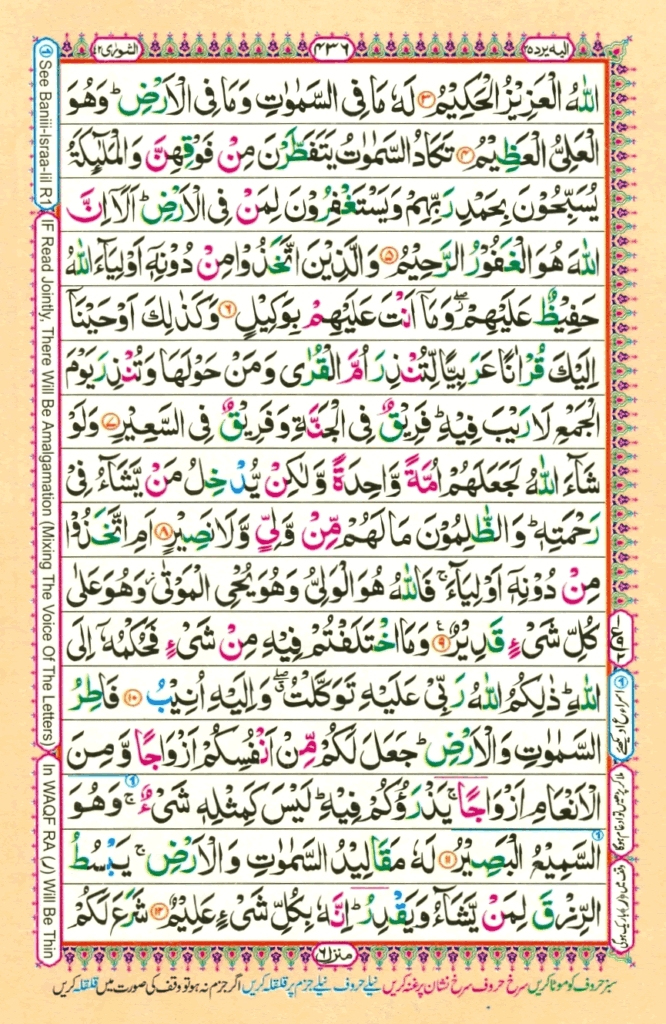 الشورٰى ٤٢
٤٣٦
اليه يرده ٢٥
اللّٰهُ الْعَزِيْزُ الْحَكِيْمُ ﴿٣﴾ لَهٗ مَا فِى السَّمٰوٰتِ وَمَا فِى الْاَرْضِ ؕ وَهُوَ
الْعَلِىُّ الْعَظِيْمُ ﴿٤﴾ تَكَادُ السَّمٰوٰتُ يَتَفَطَّرْنَ مِنْ فَوْقِهِنَّ وَالْمَلٰٓئِكَةُ
يُسَبِّحُوْنَ بِحَمْدِ رَبِّهِمْ وَيَسْتَغْفِرُوْنَ لِمَنْ فِى الْاَرْضِ ؕ اَلَاۤ اِنَّ
اللّٰهَ هُوَ الْغَفُوْرُ الرَّحِيْمُ ﴿٥﴾ وَالَّذِيْنَ اتَّخَذُوْا مِنْ دُوْنِهٖۤ اَوْلِيَآءَ اللّٰهُ
حَفِيْظٌ عَلَيْهِمْ ۖ وَمَاۤ اَنْتَ عَلَيْهِمْ بِوَكِيْلٍ ﴿٦﴾ وَكَذٰلِكَ اَوْحَيْنَاۤ
اِلَيْكَ قُرْاٰنًا عَرَبِيًّا لِّتُنْذِرَ اُمَّ الْقُرٰى وَمَنْ حَوْلَهَا وَتُنْذِرَ يَوْمَ
الْجَمْعِ لَا رَيْبَ فِيْهِ ؕ فَرِيْقٌ فِى الْجَنَّةِ وَفَرِيْقٌ فِى السَّعِيْرِ ﴿٧﴾ وَلَوْ
شَآءَ اللّٰهُ لَجَعَلَهُمْ اُمَّةً وَّاحِدَةً وَّلٰكِنْ يُّدْخِلُ مَنْ يَّشَآءُ فِىْ
رَحْمَتِهٖ ؕ وَالظّٰلِمُوْنَ مَا لَهُمْ مِّنْ وَّلِىٍّ وَّلَا نَصِيْرٍ ﴿٨﴾ اَمِ اتَّخَذُوْا
مِنْ دُوْنِهٖۤ اَوْلِيَآءَ ۚ فَاللّٰهُ هُوَ الْوَلِىُّ وَهُوَ يُحْىِ الْمَوْتٰى ؗ وَهُوَ عَلٰى
كُلِّ شَىْءٍ قَدِيْرٌ ﴿٩﴾ وَمَا اخْتَلَفْتُمْ فِيْهِ مِنْ شَىْءٍ فَحُكْمُهٗۤ اِلَى
اللّٰهِ ؕ ذٰلِكُمُ اللّٰهُ رَبِّىْ عَلَيْهِ تَوَكَّلْتُ ۖ وَاِلَيْهِ اُنِيْبُ ﴿١٠﴾ فَاطِرُ
السَّمٰوٰتِ وَالْاَرْضِ ؕ جَعَلَ لَكُمْ مِّنْ اَنْفُسِكُمْ اَزْوَاجًا وَّمِنَ
الْاَنْعَامِ اَزْوَاجًا ۚ يَذْرَؤُكُمْ فِيْهِ ؕ لَيْسَ كَمِثْلِهٖ شَىْءٌ ۚ وَهُوَ
السَّمِيْعُ الْبَصِيْرُ ﴿١١﴾ لَهٗ مَقَالِيْدُ السَّمٰوٰتِ وَالْاَرْضِ ۚ يَبْسُطُ
الرِّزْقَ لِمَنْ يَّشَآءُ وَيَقْدِرُ ؕ اِنَّهٗ بِكُلِّ شَىْءٍ عَلِيْمٌ ﴿١٢﴾ شَرَعَ لَكُمْ
منزل ٦
سبز حروف کو موٹا کریں سرخ حروف سرخ نشان پر غنہ کریں نیلے حروف نیلے جزم پر قلقلہ کریں اگر جزم نہ ہو تو وقف کی صورت میں قلقلہ کریں
See Baniii-Israa-Iil R1
IF Read Jointly, There Will Be Amalgamation (Mixing The Voice Of The Letters)
In WAQF RA (ر) Will Be Thin